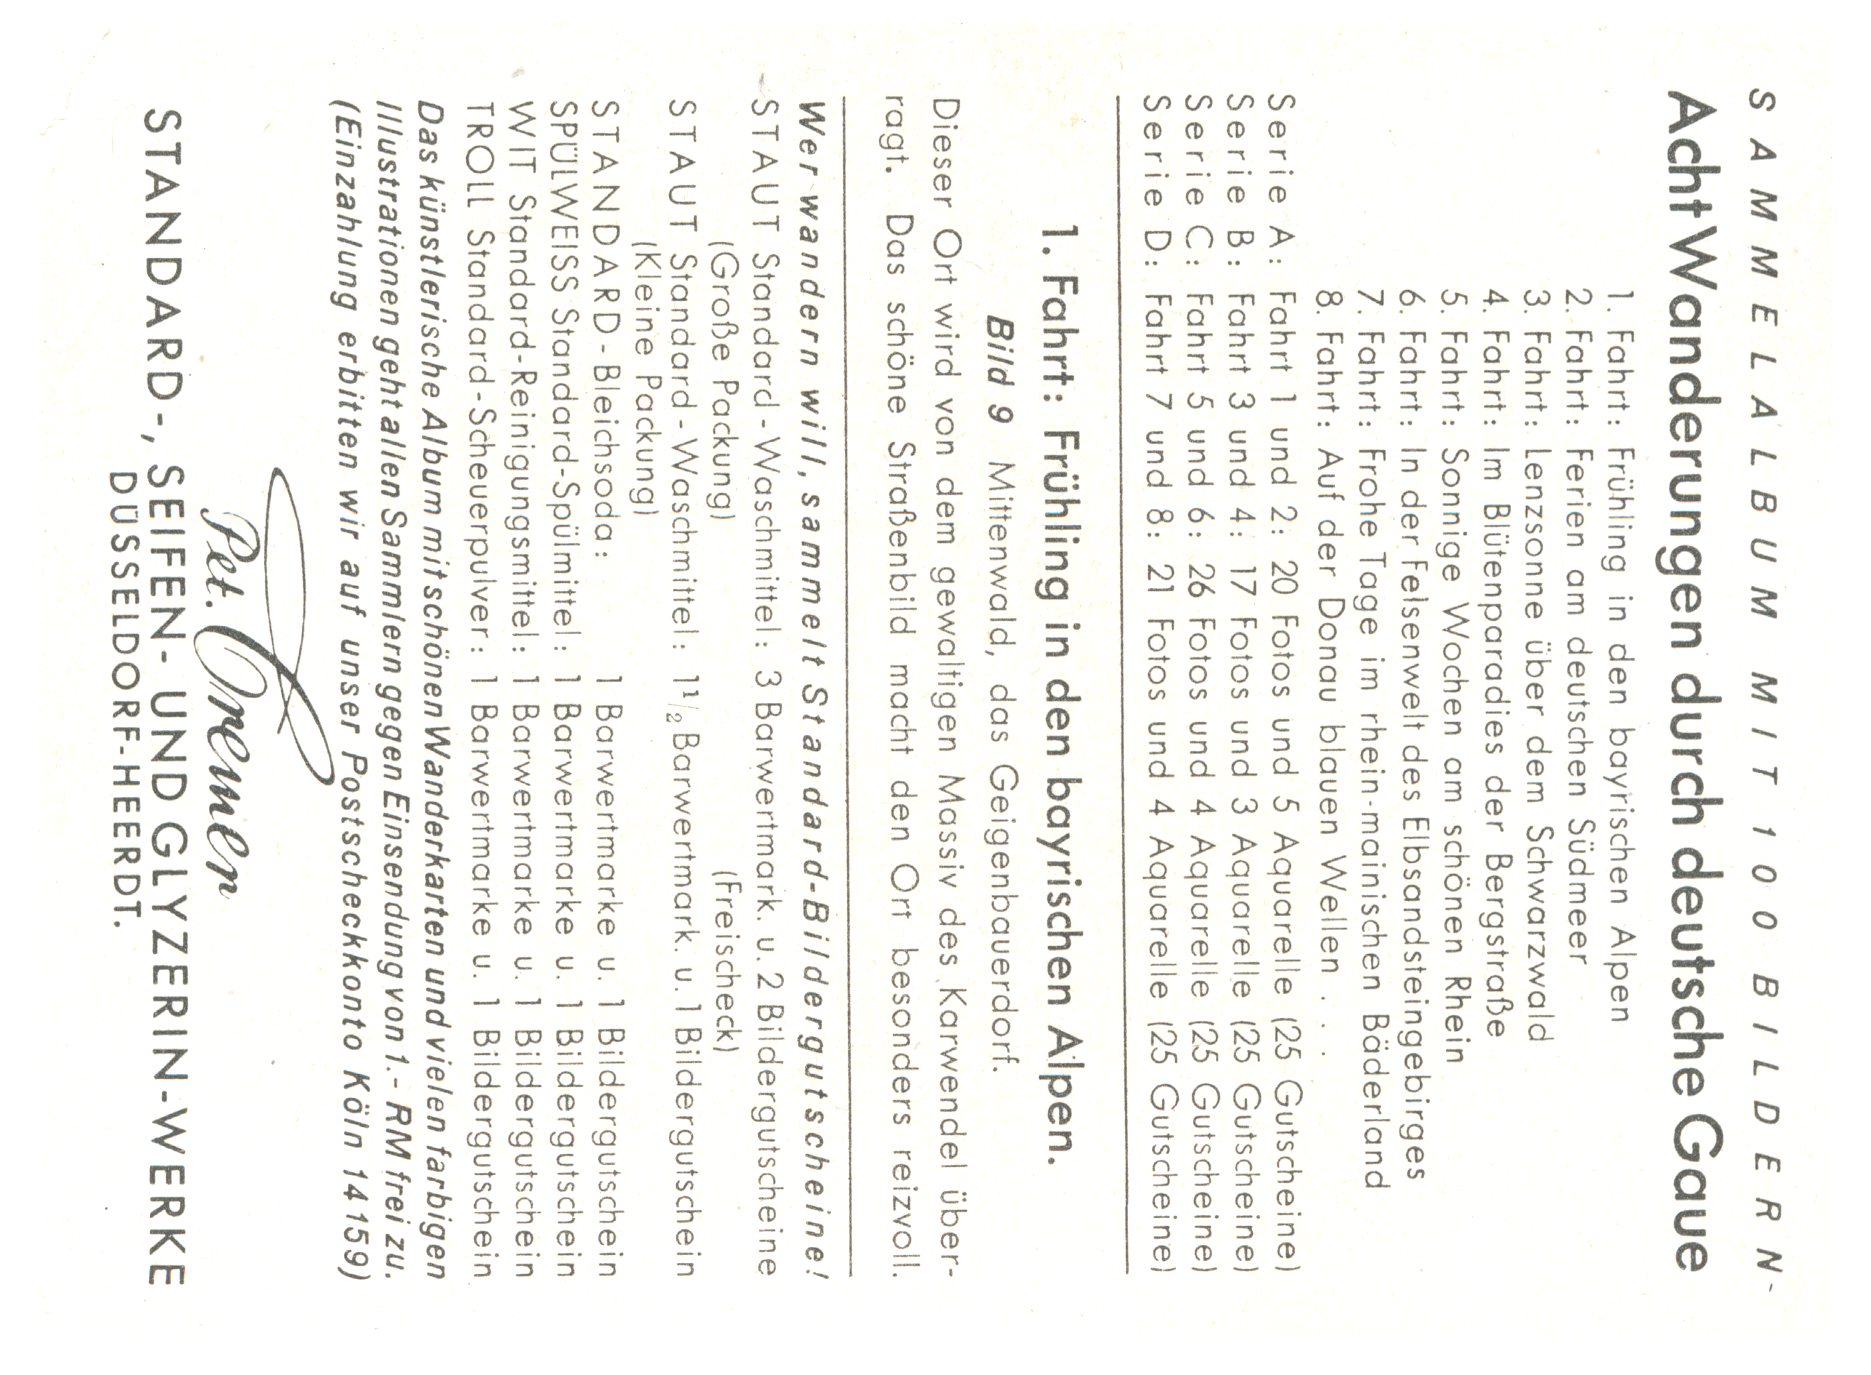 SAMMELALBUM MIT 100 BILDERN
Acht Wanderungen durch deutsche Gaue
1. Fahrt: Frühling in den bayrischen Alpen
2. Fahrt: Ferien am deutschen Südmeer
3. Fahrt: Lenzsonne über dem Schwarzwald
4. Fahrt: Im Blütenparadies der Bergstraße
5. Fahrt: Sonnige Wochen am schönen Rhein
6. Fahrt: In der Felsenwelt des Elbsandsteingebirges
7. Fahrt: Frohe Tage im rhein-mainischen Bäderland
8. Fahrt: Auf der Donau blauen Wellen . . .
Serie A: Fahrt 1 und 2: 20 Fotos und 5 Aquarelle (25 Gutscheine)
Serie B: Fahrt 3 und 4: 17 Fotos und 3 Aquarelle (25 Gutscheine)
Serie C: Fahrt 5 und 6: 26 Fotos und 4 Aquarelle (25 Gutscheine)
Serie D: Fahrt 7 und 8: 21 Fotos und 4 Aquarelle (25 Gutscheine)
1. Fahrt: Frühling in den bayrischen Alpen.
Bild 9 Mittenwald, das Geigenbauerdorf.
Dieser Ort wird von dem gewaltigen Massiv des Karwendel über-
ragt. Das schöne Straßenbild macht den Ort besonders reizvoll.
Wer wandern will, sammelt Standard-Bildergutscheine!
STAUT Standard-Waschmittel: 3 Barwertmark. u. 2 Bildergutscheine
(Große Packung) (Freischeck)
STAUT Standard-Waschmittel: 1 1/2 Barwertmark. u. 1 Bildergutschein
(Kleine Packung)
STANDARD-Bleichsoda: 1 Barwertmarke u. 1 Bildergutschein
SPÜLWEISS Standard-Spülmittel: 1 Barwertmarke u. 1 Bildergutschein
WIT Standard-Reinigungsmittel: 1 Barwertmarke u. 1 Bildergutschein
TROLL Standard-Scheuerpulver: 1 Barwertmarke u. 1 Bildergutschein
Das künstlerische Album mit schönen Wanderkarten und vielen farbigen
Illustrationen geht allen Sammlern gegen Einsendung von 1.- RM frei zu.
(Einzahlung erbitten wir auf unser Postscheckkonto Köln 14159)
Pet. Cremer
STANDARD-, SEIFEN- UND GLYZERIN-WERKE
DÜSSELDORF-HEERDT.